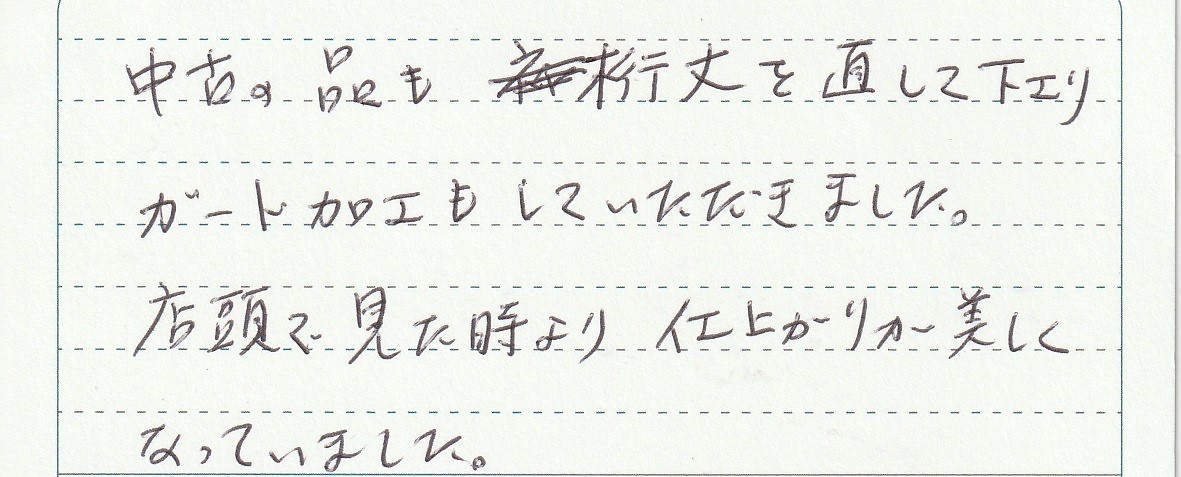 中古の品も 桁丈を直して下さり
ガード加工もしていただきました。
店頭で見た時より 仕上がりが美しく
なっていました。